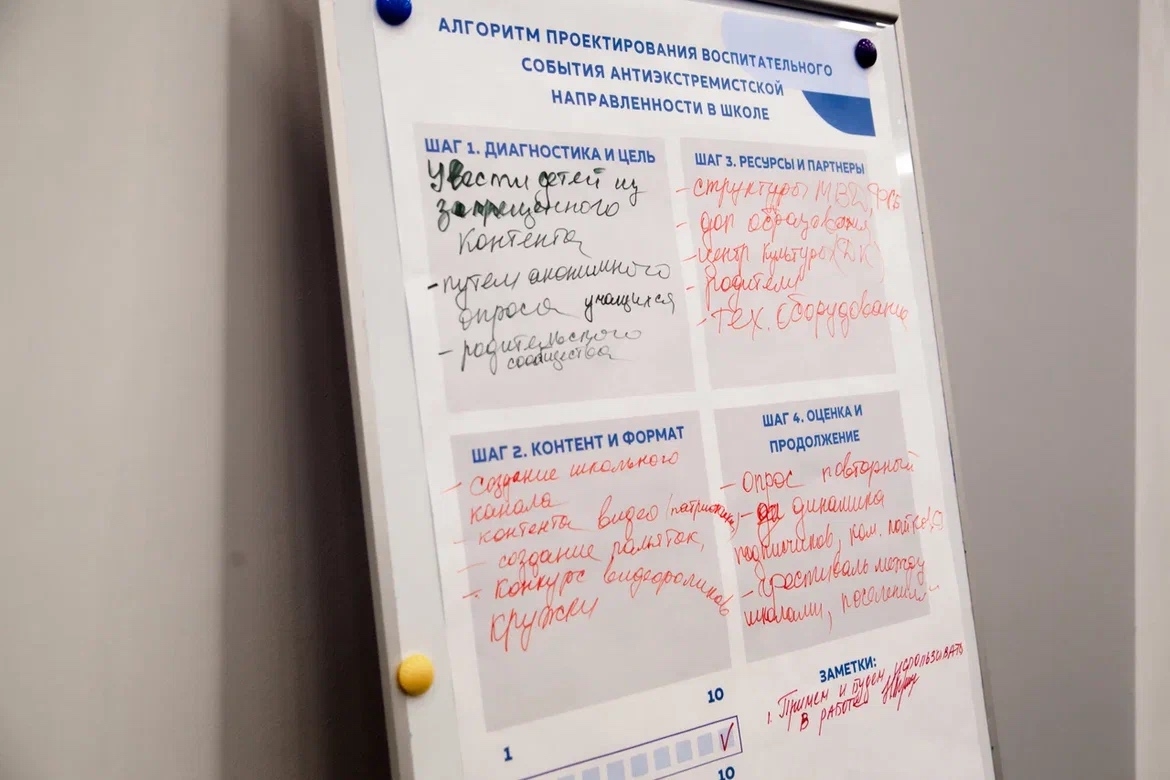 АЛГОРИТМ ПРОЕКТИРОВАНИЯ ВОСПИТАТЕЛЬНОГО
СОБЫТИЯ АНТИЭКСТРЕМИСТСКОЙ
НАПРАВЛЕННОСТИ В ШКОЛЕ
ШАГ 1. ДИАГНОСТИКА И ЦЕЛЬ
Увести детей из
запрещенного
контента
- путем анонимного
опроса учащихся
- родительского
сообщества
ШАГ 2. КОНТЕНТ И ФОРМАТ
- создание школьного
канала
- контента видео
- создание памяток,
- конкурс видеороликов
кружки
ШАГ 3. РЕСУРСЫ И ПАРТНЕРЫ
- структуры МВД, ФСБ
- доп образования
- центр культуры (ДК)
- родители
- тех. оборудование
ШАГ 4. ОЦЕНКА И
ПРОДОЛЖЕНИЕ
- опрос повторный
- динамика
подписчиков,
- фестиваль между
школами,
ЗАМЕТКИ:
1. Примем и будем использовать
в работе
1
10
10